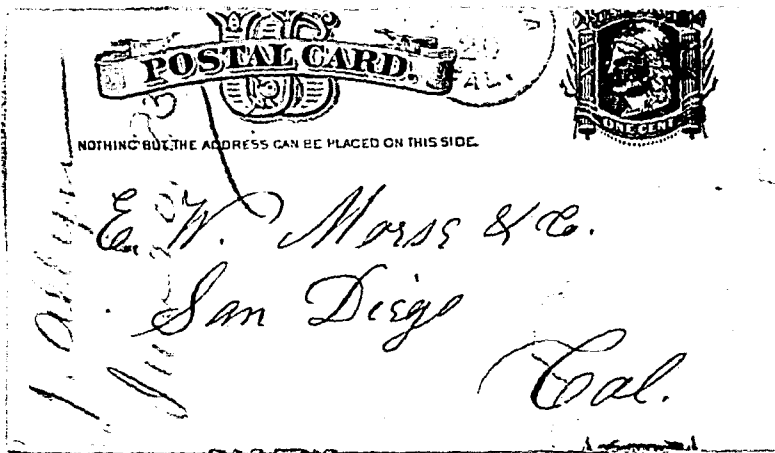 POSTAL CARD.
20
CAL.
ONE CENT
NOTHING BUT THE ADDRESS CAN BE PLACED ON THIS SIDE.
E. W. Morse & Co.
San Diego
Cal.